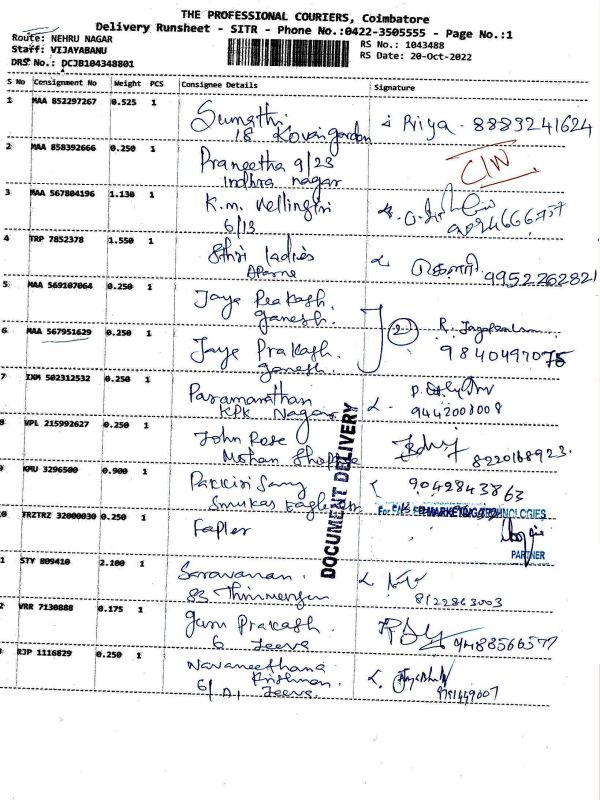 THE PROFESSIONAL COURIERS, Coimbatore
Delivery Runsheet - SITR - Phone No.:0422-3505555 - Page No.:1
Route: NEHRU NAGAR
Staff: VIJAYABANU
DRS No.: DCJB104348801
RS No.: 1043488
RS Date: 20-Oct-2022
S No Consignment No Weight PCS Consignee Details Signature
1 MAA 852297267 0.525 1 Sumathi Priya - 8883241624
18 Kovai garden
2 MAA 858392666 0.250 1 Praneetha 9/23 CIN
Indhra nagar
3 MAA 567804196 1.130 1 K.m. Vellingiri
6/13
4 TRP 7852378 1.550 1 Sthri ladies கௌரி 9952262821
5 MAA 569107064 0.250 1 Jaya Prakash
ganesh.
6 MAA 567951629 0.250 1 Jaye Prakash. 2 R.
ganesh. 9840497075
7 IXM 502312532 0.250 1 Paramanathan
KPK Nagar 9442003008
8 VPL 215992627 0.250 1 John Rose
Mohan 8220168923.
9 KMU 3296500 0.900 1 Pakkiri Samy 9042843863
10 TRZTRZ 32000030 0.250 1
For MARKETING TECHNOLOGIES
PARTNER
DOCUMENT DELIVERY
1 STY 809410 2.100 1 Saravanan.
83 8122863003
2 VRR 7130888 0.175 1 Gum Prakash
6 Jeeva 9488566577
RJP 1116829 0.250 1 Navaneethana
Krishnan.
6/ Jeeva. 9791449007